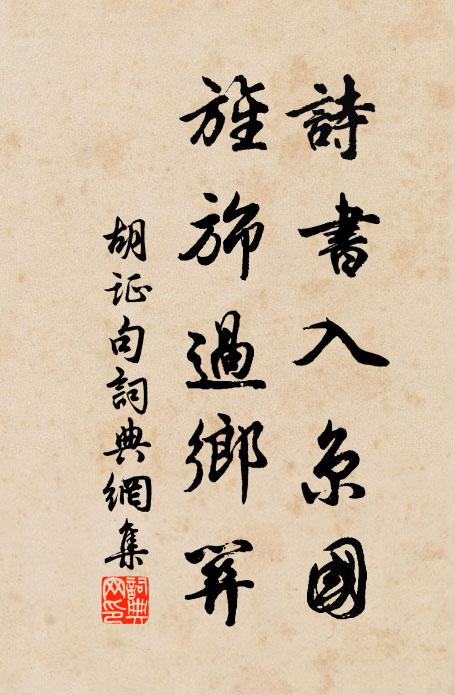 詩書入京國
旌旆過鄉關
胡证句詞典網集
詞典網印